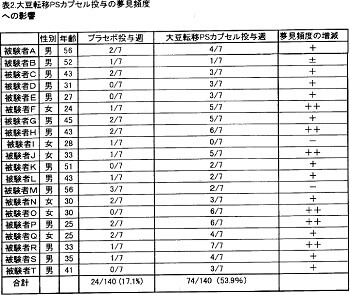 表2.大豆転移PSカプセル投与の夢見頻度
への影響
性別 年齢 プラセボ投与週 大豆転移PSカプセル投与週 夢見頻度の増減
被験者A 男 56 2/7 4/7 +
被験者B 男 52 1/7 1/7 ±
被験者C 男 43 2/7 3/7 +
被験者D 男 31 0/7 3/7 +
被験者E 男 27 0/7 3/7 +
被験者F 女 24 1/7 5/7 ++
被験者G 男 45 2/7 5/7 +
被験者H 男 43 2/7 6/7 ++
被験者I 女 28 1/7 0/7 −
被験者J 女 33 1/7 5/7 ++
被験者K 男 51 0/7 2/7 +
被験者L 男 43 1/7 2/7 +
被験者M 男 56 3/7 2/7 −
被験者N 女 30 2/7 3/7 +
被験者O 女 30 0/7 6/7 ++
被験者P 男 25 2/7 6/7 ++
被験者Q 女 25 2/7 4/7 +
被験者R 男 33 1/7 7/7 ++
被験者S 男 35 1/7 4/7 +
被験者T 男 41 0/7 3/7 +
合計 24/140 (17.1%) 74/140 (53.9%)